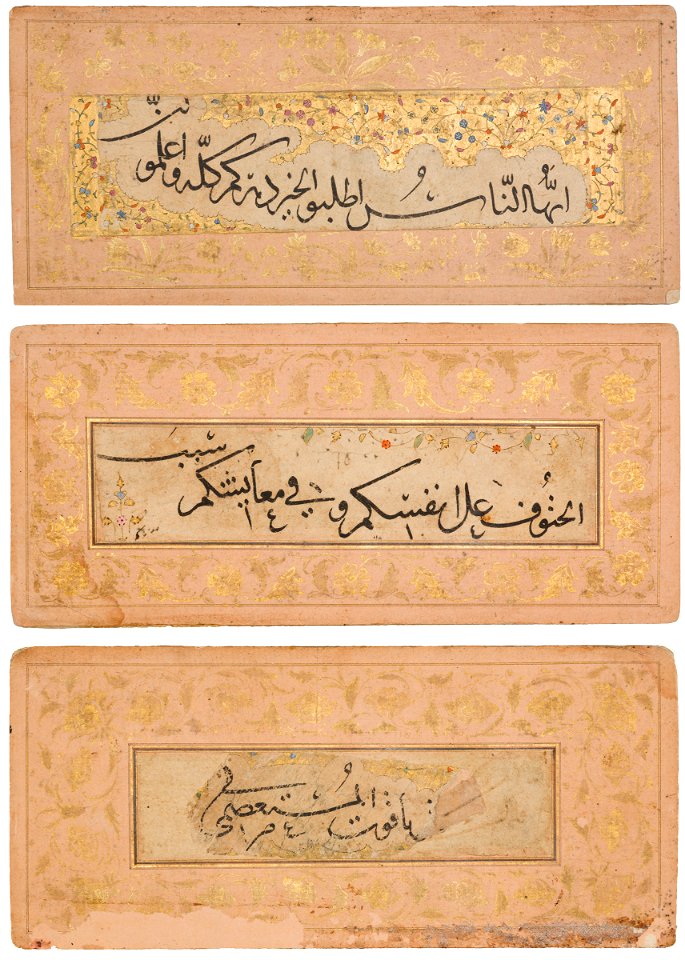 ايُّها النّاس اطلبو الخير دهركم كلّه واعلمو
الحتُوف على انفسكم و في معايشكم سبب
ياقوت المستعصمي